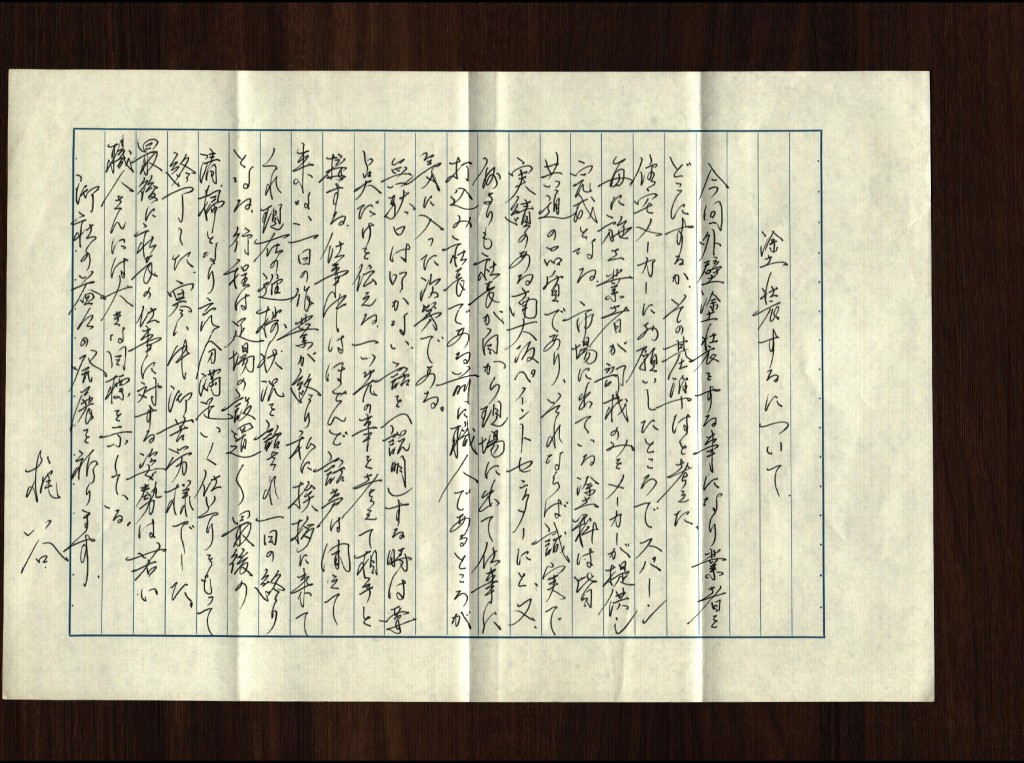 塗装するについて
今回外壁塗装をする事になり業者を
どこにするか、その基準はと考えた
住宅メーカーにお願いしたところで、スパーン
毎に施工業者が部材のみをメーカーが提供し
完成となる。市場に出ている塗料は皆
共通の品質であり、それならば誠実で
実績のある南大阪ペイントセンターにと、又
何よりも社長が自から現場に出て仕事に
打込み社長である前に職人であるところが
気に入った次第である。
無駄口は叩かない、話を(説明)する時は要
点だけを伝える。一い先の事を考えて相手と
接する。仕事中はほとんど話声は聞えて
来ない、一日の作業が終り私に挨拶に来て
くれ現在の進捗状況を話され一日の終り
となる。行程は足場の設置〜最後の
清掃となり充分満足いく仕上りをもって
終了した。寒い中御苦労様でした。
最後に社長の仕事に対する姿勢は若い
職人さんには大きな目標を示している。
御社の益々の発展を祈ります。
梶谷